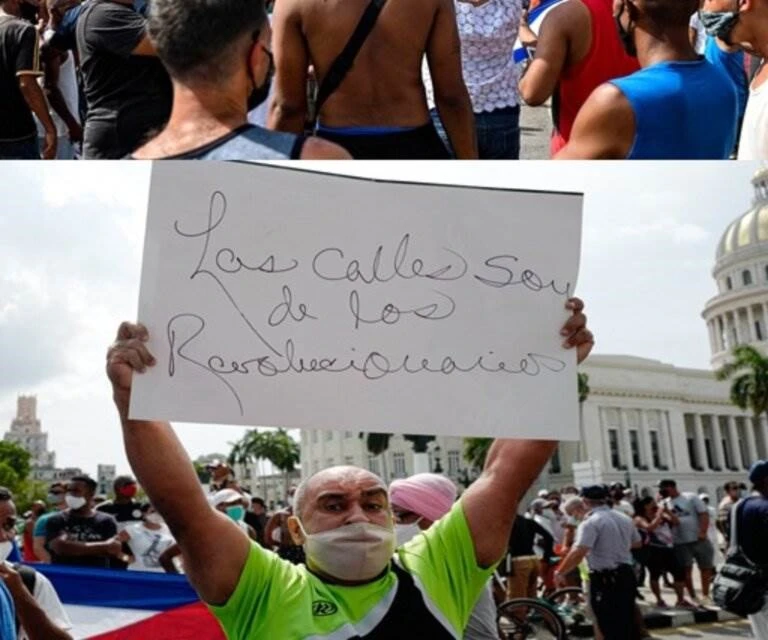 Las calles son
de los
Revolucionarios